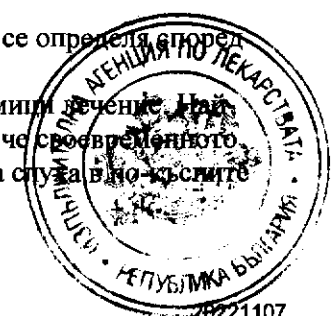 се определя според
лечение. Най-
че своевременното
слуха в по-късните
ИЗПЪЛНИТЕЛНА АГЕНЦИЯ ПО ЛЕКАРСТВАТА
РЕПУБЛИКА БЪЛГАРИЯ
20221107